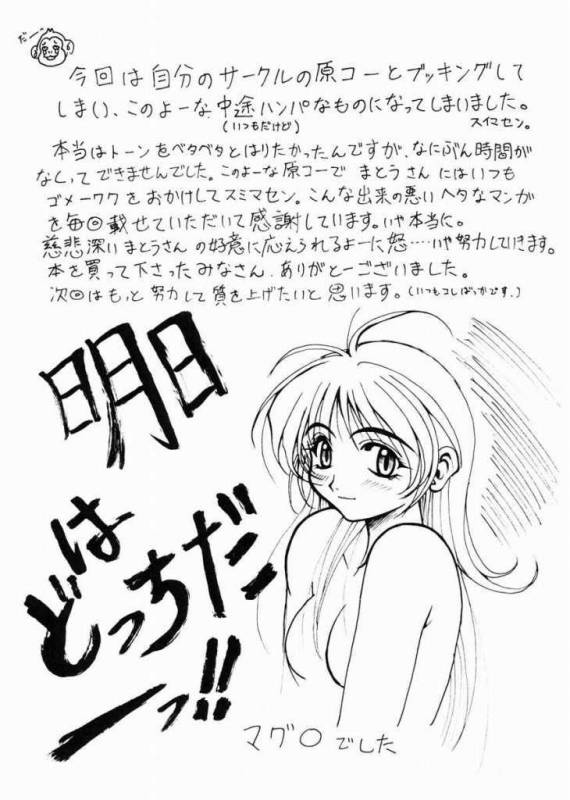 だー
今回は自分のサークルの原コーとブッキングして
しまい、このよーな中途ハンパなものになってしまいました。
(いつもだけど)
スイマセン。
本当はトーンをベタベタとはりたかったんですが、なにぶん時間が
なくってできませんでした。このよーな原コーで まとうさん にはいつも
ゴメーワクをおかけしてスミマセン。こんな出来の悪いヘタなマンガ
を毎回載せていただいて感謝しています。いや本当に。
慈悲深いまとうさん の好意に応えられるよーに怒‥‥いや努力していきます。
本を買って下さったみなさん、ありがとーございました。
次回はもっと努力して質を上げたいと思います。(いつもコレばっかです.)
明日
は
どっちだ
ーッ!!
マグ〇でした